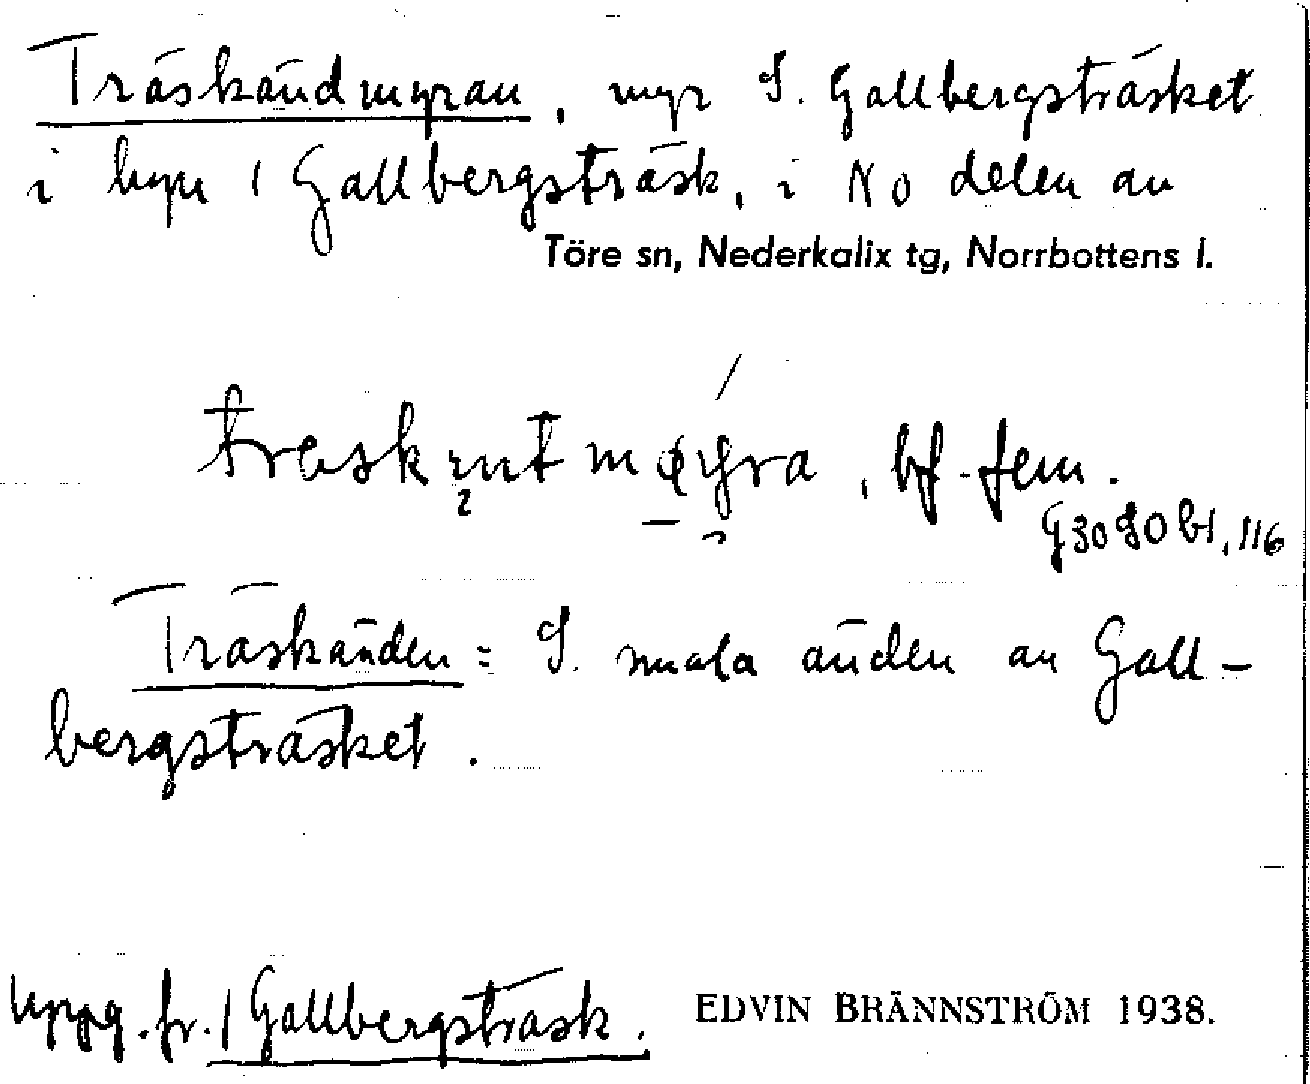 Träskändmyran, myr S. Gallbergsträsket
i byn / Gallbergsträsk, i NO delen av
Töre sn, Nederkalix tg, Norrbottens l.
bf. fem.
Träskänden = S. smala änden av Gall-
bergsträsket.
uppg. fr. / Gallbergsträsk. EDVIN BRÄNNSTRÖM 1938.